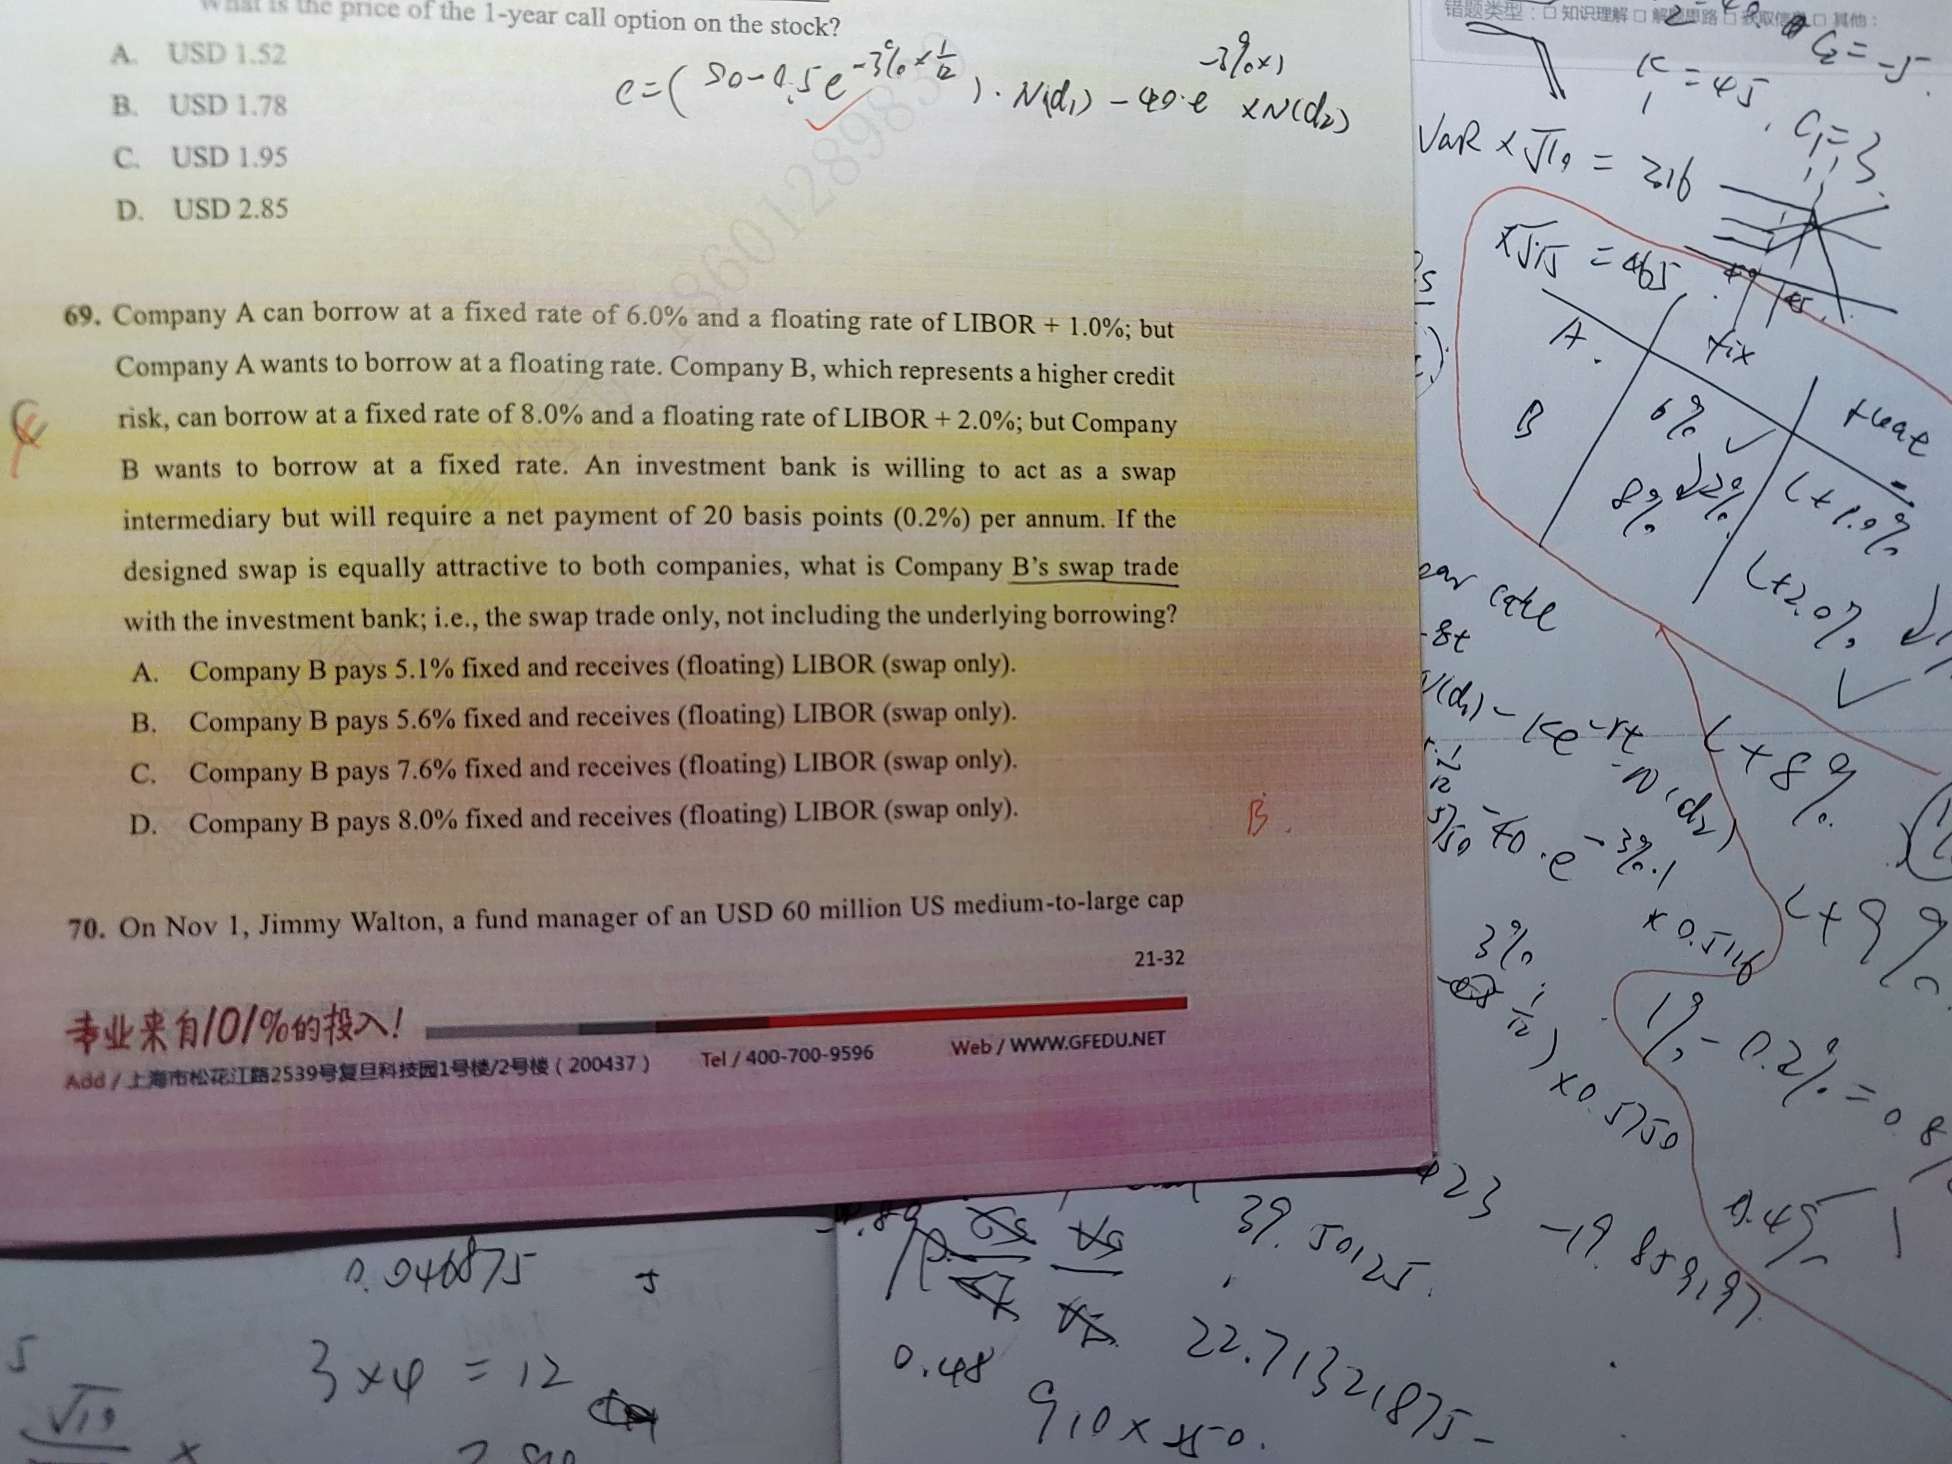 What is the price of the 1-year call option on the stock?
A. USD 1.52
B. USD 1.78
C. USD 1.95
D. USD 2.85
c=(50-0.5e^{-3%×1/12})·N(d₁)-40·e^{-3%×1}×N(d₂)
69. Company A can borrow at a fixed rate of 6.0% and a floating rate of LIBOR + 1.0%; but
Company A wants to borrow at a floating rate. Company B, which represents a higher credit
risk, can borrow at a fixed rate of 8.0% and a floating rate of LIBOR + 2.0%; but Company
B wants to borrow at a fixed rate. An investment bank is willing to act as a swap
intermediary but will require a net payment of 20 basis points (0.2%) per annum. If the
designed swap is equally attractive to both companies, what is Company B's swap trade
with the investment bank; i.e., the swap trade only, not including the underlying borrowing?
A. Company B pays 5.1% fixed and receives (floating) LIBOR (swap only).
B. Company B pays 5.6% fixed and receives (floating) LIBOR (swap only).
C. Company B pays 7.6% fixed and receives (floating) LIBOR (swap only).
D. Company B pays 8.0% fixed and receives (floating) LIBOR (swap only).
B.
70. On Nov 1, Jimmy Walton, a fund manager of an USD 60 million US medium-to-large cap
21-32
专业来自101%的投入!
Add / 上海市松花江路2539号复旦科技园1号楼/2号楼 ( 200437 )
Tel / 400-700-9596
Web / WWW.GFEDU.NET
错题类型：□ 知识理解 □ 解题思路 □ 获取信息 □ 其他：
C₂=-5.
K₁=45, C₁=3.
VaR×√10=2.16
×√15=465
A. fix float
6% L+1.0%
B 8% 2% L+2.0%
L+8%
L+9%
-40·e^{-3%·1}
×0.5116
3%
1/12)×0.5750
1%-0.2%=0.8%
0.4%
-19.859197
39.50125.
22.71321875
0.48
910×
0.046875
5
3×4=12
√10